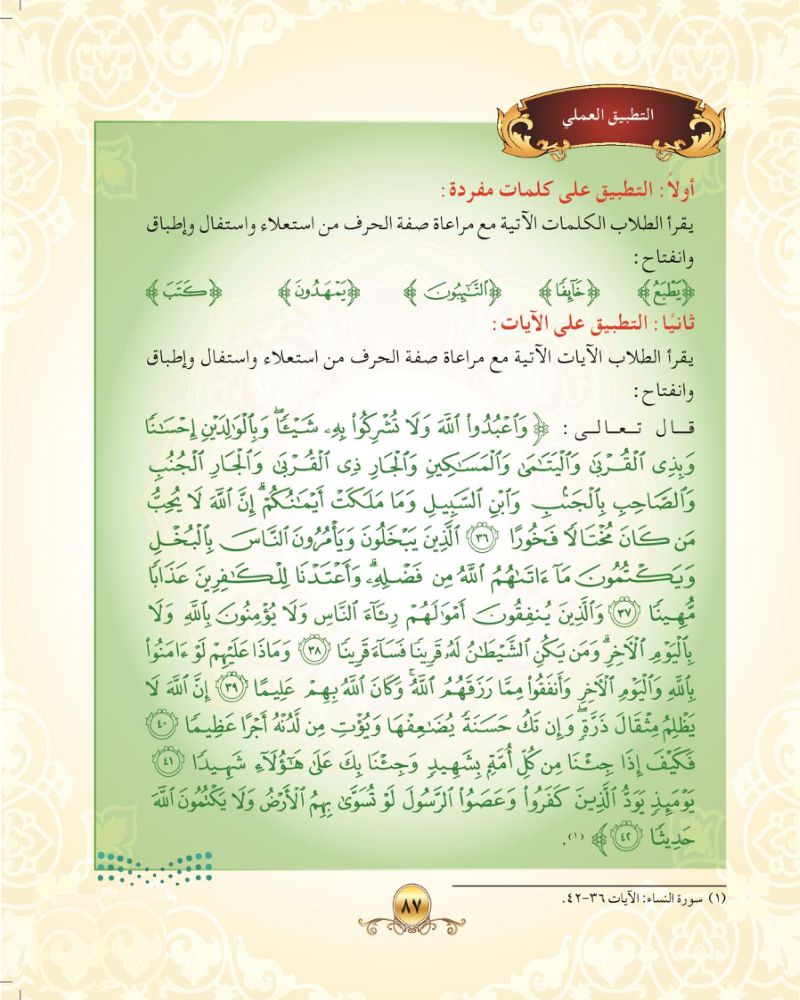 التطبيق العملي
أولاً: التطبيق على كلمات مفردة:
يقرأ الطلاب الكلمات الآتية مع مراعاة صفة الحرف من استعلاء واستفال وإطباق
وانفتاح:
﴿يَطْبَعُ﴾ ﴿خَآئِفًا﴾ ﴿ٱلتَّـٰٓئِبُونَ﴾ ﴿يَمْهَدُونَ﴾ ﴿كَتَبَ﴾
ثانيًا: التطبيق على الآيات:
يقرأ الطلاب الآيات الآتية مع مراعاة صفة الحرف من استعلاء واستفال وإطباق
وانفتاح:
قـال تـعـالـى: ﴿ وَٱعْبُدُوا۟ ٱللَّهَ وَلَا تُشْرِكُوا۟ بِهِۦ شَيْـًٔا ۖ وَبِٱلْوَٰلِدَيْنِ إِحْسَـٰنًا
وَبِذِى ٱلْقُرْبَىٰ وَٱلْيَتَـٰمَىٰ وَٱلْمَسَـٰكِينِ وَٱلْجَارِ ذِى ٱلْقُرْبَىٰ وَٱلْجَارِ ٱلْجُنُبِ
وَٱلصَّاحِبِ بِٱلْجَنۢبِ وَٱبْنِ ٱلسَّبِيلِ وَمَا مَلَكَتْ أَيْمَـٰنُكُمْ ۗ إِنَّ ٱللَّهَ لَا يُحِبُّ
مَن كَانَ مُخْتَالًا فَخُورًا ٣٦ ٱلَّذِينَ يَبْخَلُونَ وَيَأْمُرُونَ ٱلنَّاسَ بِٱلْبُخْلِ
وَيَكْتُمُونَ مَآ ءَاتَىٰهُمُ ٱللَّهُ مِن فَضْلِهِۦ ۗ وَأَعْتَدْنَا لِلْكَـٰفِرِينَ عَذَابًا
مُّهِينًا ٣٧ وَٱلَّذِينَ يُنفِقُونَ أَمْوَٰلَهُمْ رِئَآءَ ٱلنَّاسِ وَلَا يُؤْمِنُونَ بِٱللَّهِ وَلَا
بِٱلْيَوْمِ ٱلْـَٔاخِرِ ۗ وَمَن يَكُنِ ٱلشَّيْطَـٰنُ لَهُۥ قَرِينًا فَسَآءَ قَرِينًا ٣٨ وَمَاذَا عَلَيْهِمْ لَوْ ءَامَنُوا۟
بِٱللَّهِ وَٱلْيَوْمِ ٱلْـَٔاخِرِ وَأَنفَقُوا۟ مِمَّا رَزَقَهُمُ ٱللَّهُ ۚ وَكَانَ ٱللَّهُ بِهِمْ عَلِيمًا ٣٩ إِنَّ ٱللَّهَ لَا
يَظْلِمُ مِثْقَالَ ذَرَّةٍ ۖ وَإِن تَكُ حَسَنَةً يُضَـٰعِفْهَا وَيُؤْتِ مِن لَّدُنْهُ أَجْرًا عَظِيمًا ٤٠
فَكَيْفَ إِذَا جِئْنَا مِن كُلِّ أُمَّةٍۭ بِشَهِيدٍ وَجِئْنَا بِكَ عَلَىٰ هَـٰٓؤُلَآءِ شَهِيدًا ٤١
يَوْمَئِذٍ يَوَدُّ ٱلَّذِينَ كَفَرُوا۟ وَعَصَوُا۟ ٱلرَّسُولَ لَوْ تُسَوَّىٰ بِهِمُ ٱلْأَرْضُ وَلَا يَكْتُمُونَ ٱللَّهَ
حَدِيثًا ٤٢ ﴾ (١).
(١) سورة النساء: الآيات ٣٦-٤٢.
٨٧